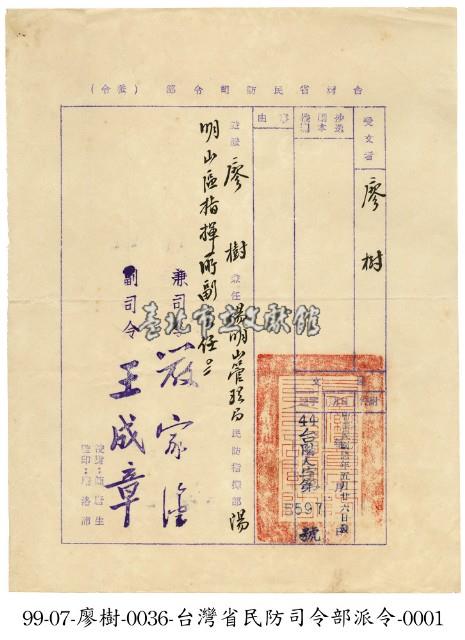 台灣省民防司令部（派令）
受文者
廖樹
事由
44
字第5597號
五月廿六日發
廖樹兼任陽明山管理局民防指揮部陽
明山區指揮所副主任
兼司令 嚴家淦
副司令 王成章
臺北市立文獻館
99-07-廖樹-0036-台灣省民防司令部派令-0001